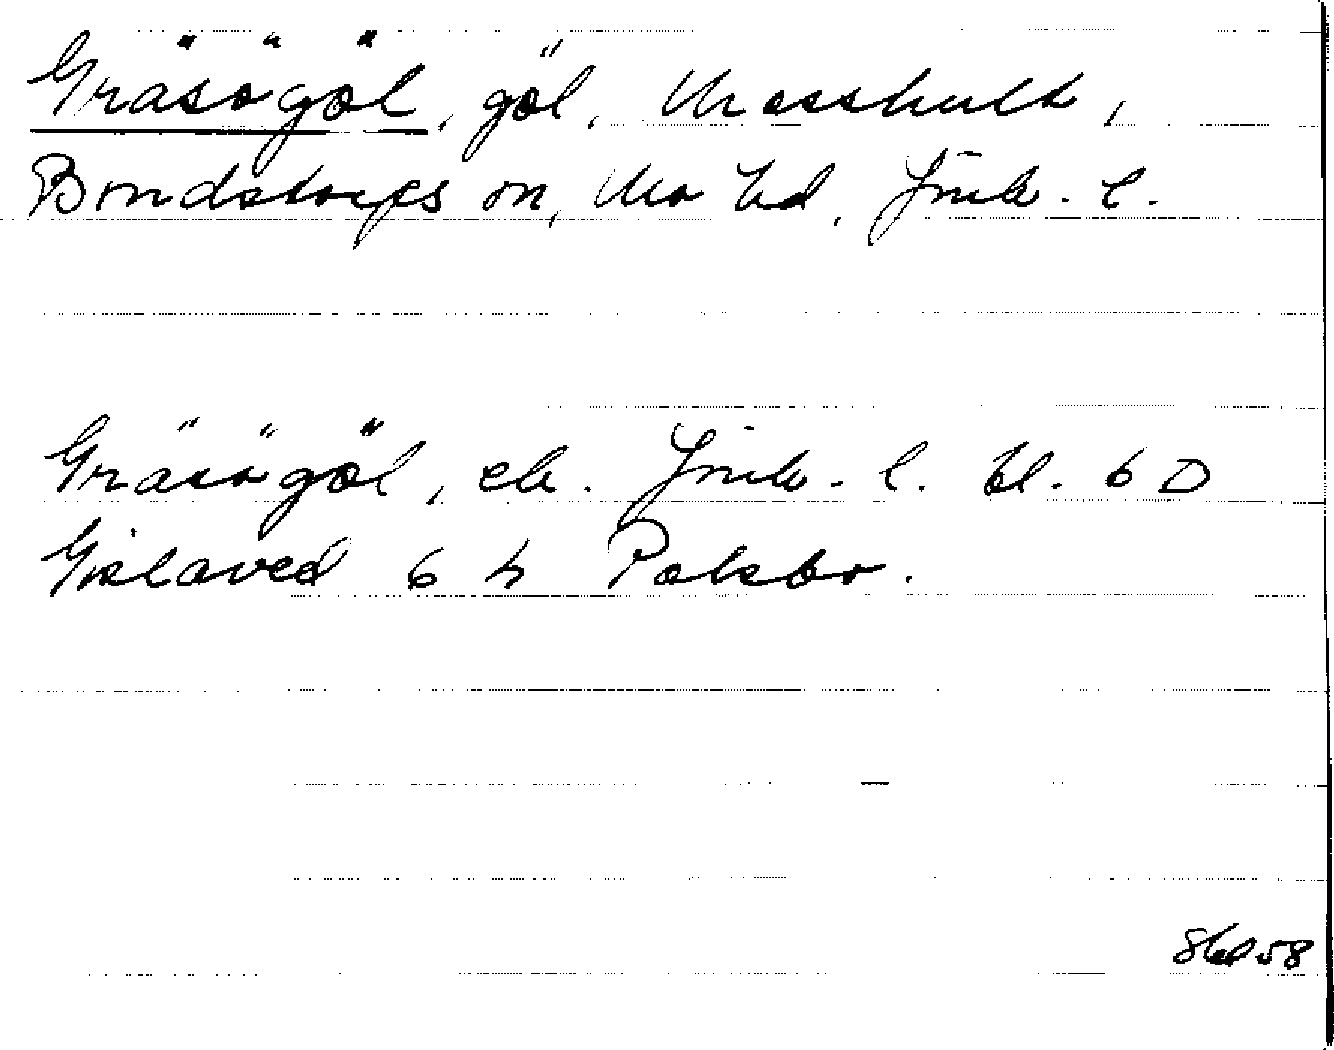 Gräsögöl, göl, Mosshult,
Bondstorps sn, Mo hd, Jönk. l.
Gräsögöl, ek. Jönk. l. bl. 6 D
Gislaved 6 h Palsbo.